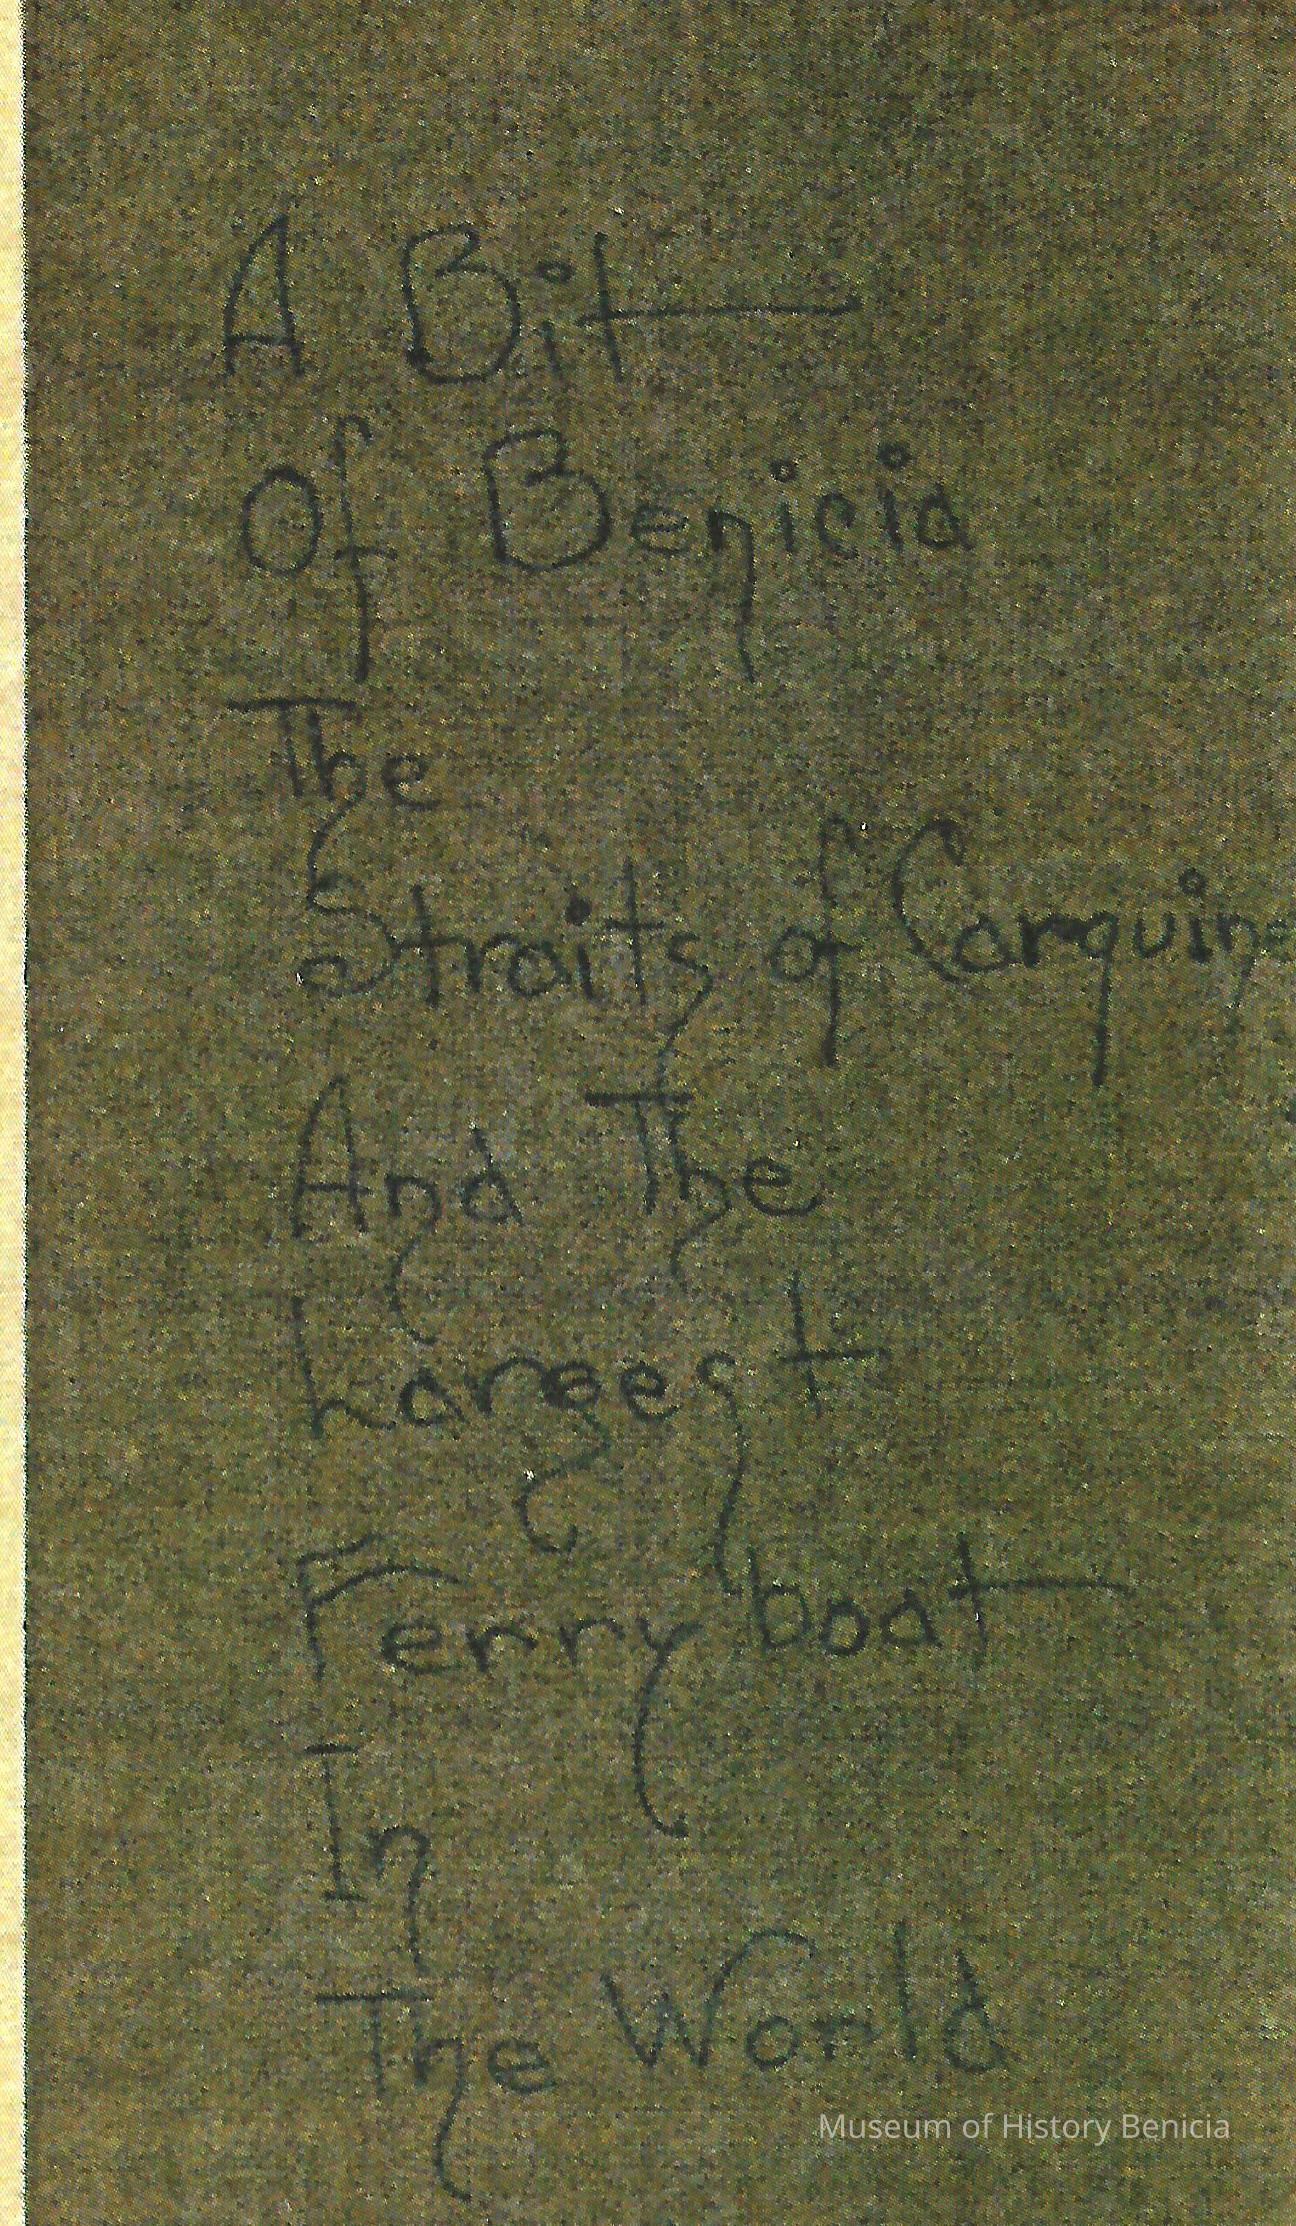 A Bit
Of Benicia
The
Straits of Carquine
And The
Largest
Ferry boat
In
The World
Museum of History Benicia